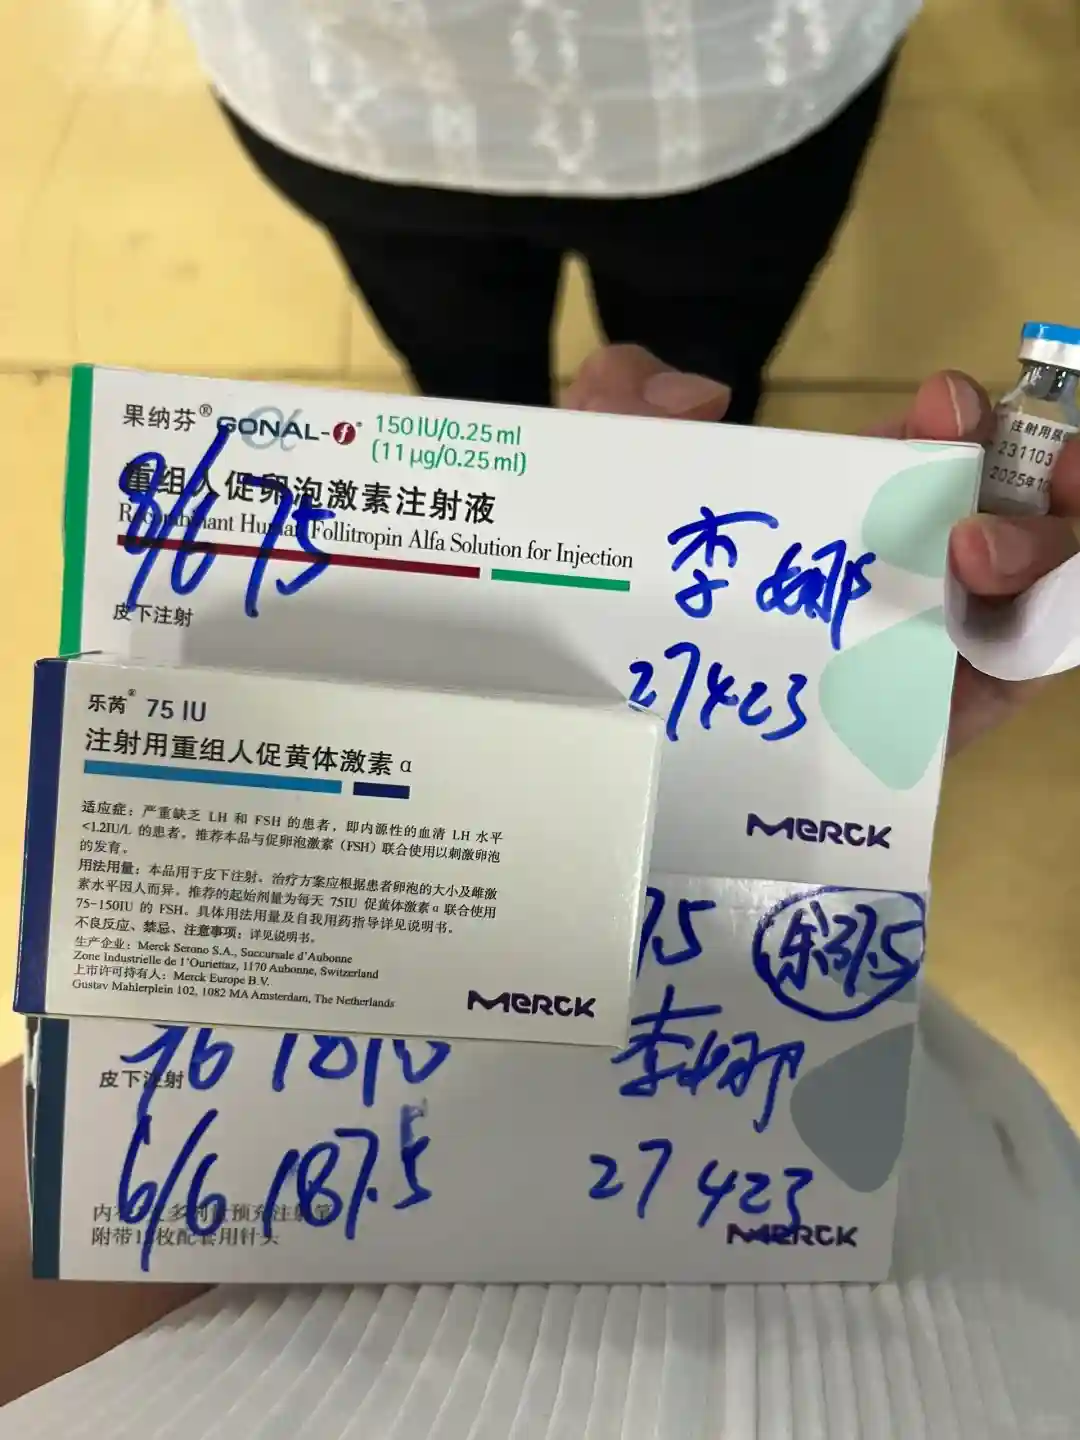 果纳芬® GONAL-f® 150 IU/0.25 ml
(11 μg/0.25 ml)
重组人促卵泡激素注射液
Recombinant Human Follitropin Alfa Solution for Injection
8/6 75
皮下注射
李娜
27423
MERCK
注射用尿
231103
2025年10
乐芮® 75 IU
注射用重组人促黄体激素α
适应症:严重缺乏 LH 和 FSH 的患者,即内源性的血清 LH 水平
<1.2IU/L 的患者。推荐本品与促卵泡激素(FSH)联合使用以刺激卵泡
的发育。
用法用量:本品用于皮下注射。治疗方案应根据患者卵泡的大小及雌激
素水平因人而异。推荐的起始剂量为每天 75IU 促黄体激素α 联合使用
75-150IU 的 FSH。具体用法用量及自我用药指导详见说明书。
不良反应、禁忌、注意事项:详见说明书。
生产企业:Merck Serono S.A., Succursale d'Aubonne
Zone Industrielle de l'Ouriettaz, 1170 Aubonne, Switzerland
上市许可持有人:Merck Europe B.V.
Gustav Mahlerplein 102, 1082 MA Amsterdam, The Netherlands
MERCK
75
余37.5
皮下注射
李娜
6/6 187.5
27423
多剂量预充注射笔
附带1 枚配套用针头
MERCK